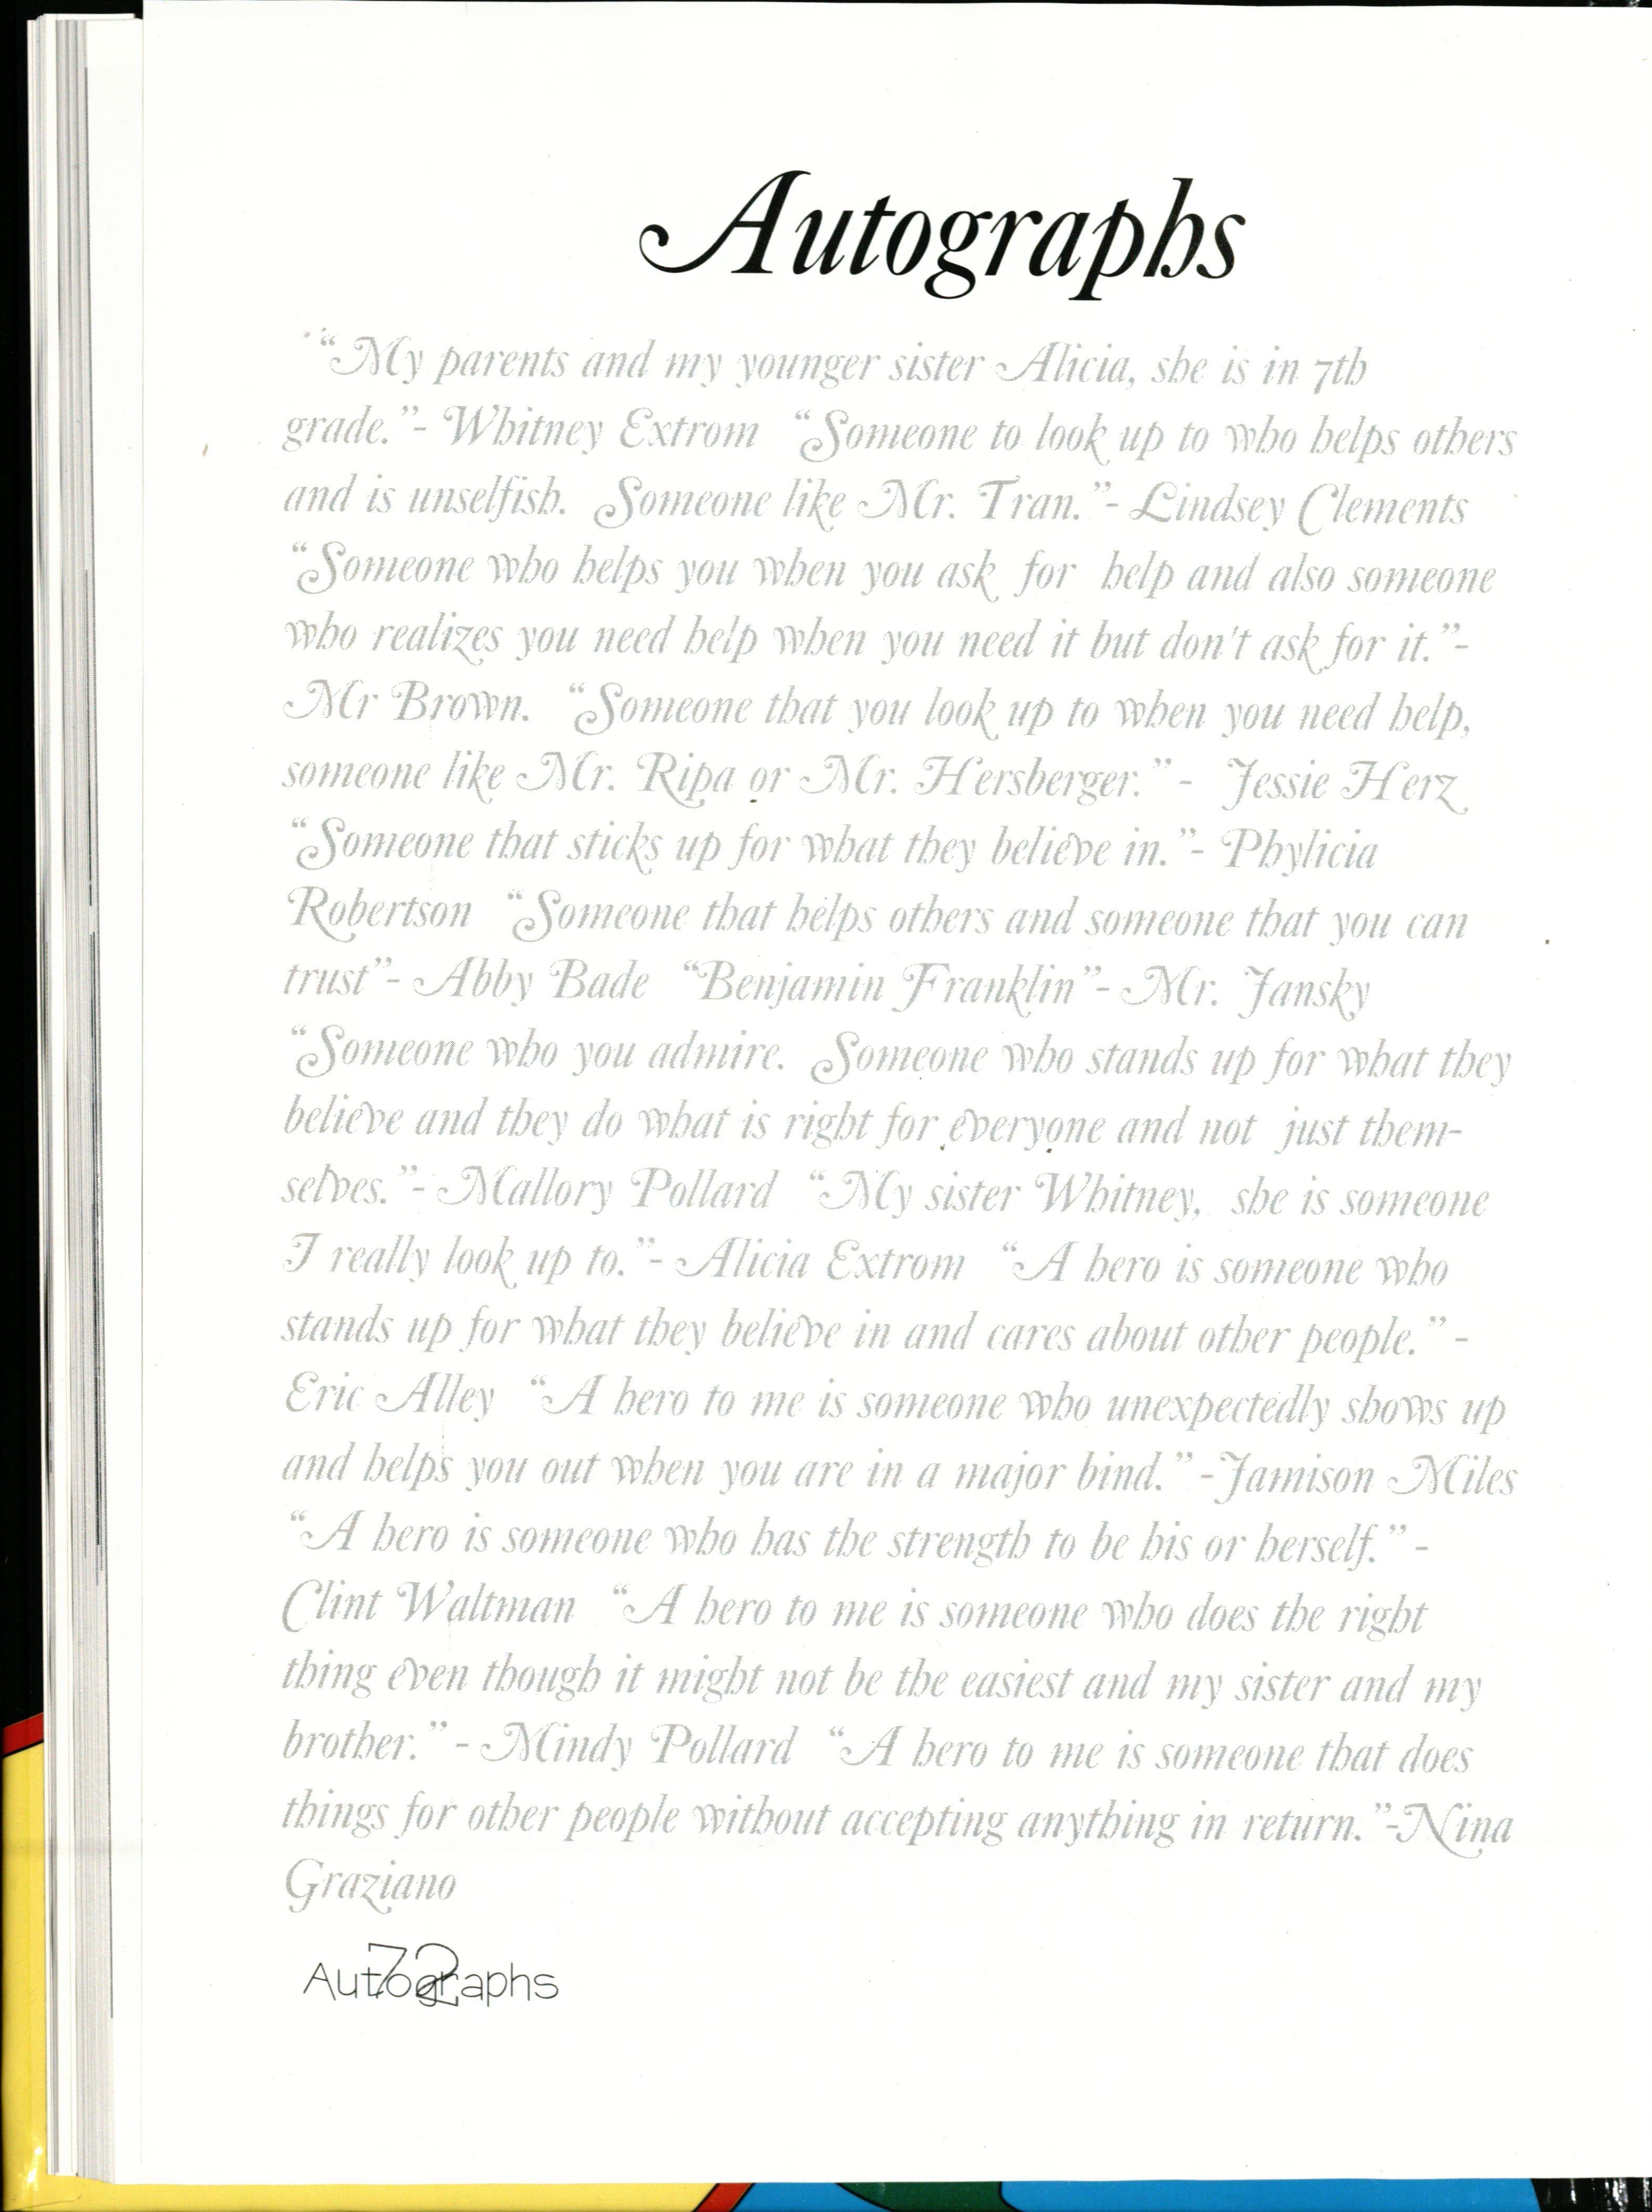 Autographs
"My parents and my younger sister Alicia, she is in 7th
grade."- Whitney Extrom "Someone to look up to who helps others
and is unselfish. Someone like Mr. Tran."- Lindsey Clements
"Someone who helps you when you ask for help and also someone
who realizes you need help when you need it but don't ask for it."-
Mr Brown. "Someone that you look up to when you need help,
someone like Mr. Ripa or Mr. Hersberger." - Jessie Herz
"Someone that sticks up for what they believe in."- Phylicia
Robertson "Someone that helps others and someone that you can
trust"- Abby Bade "Benjamin Franklin"- Mr. Jansky
"Someone who you admire. Someone who stands up for what they
believe and they do what is right for everyone and not just them-
selves."- Mallory Pollard "My sister Whitney, she is someone
I really look up to."- Alicia Extrom "A hero is someone who
stands up for what they believe in and cares about other people." -
Eric Alley "A hero to me is someone who unexpectedly shows up
and helps you out when you are in a major bind." -Jamison Miles
"A hero is someone who has the strength to be his or herself." -
Clint Waltman "A hero to me is someone who does the right
thing even though it might not be the easiest and my sister and my
brother." - Mindy Pollard "A hero to me is someone that does
things for other people without accepting anything in return."-Nina
Graziano
72
Autographs